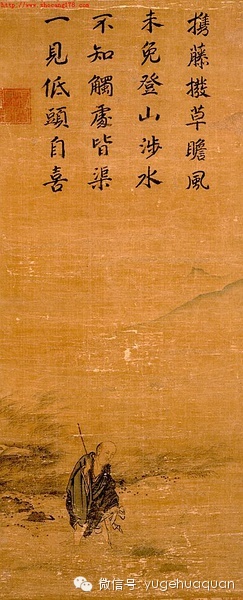 http://www.zhonung178.com
攜藤撥草瞻風
未免登山涉水
不知觸處皆渠
一見低頭自喜
微信号: yugehuaquan